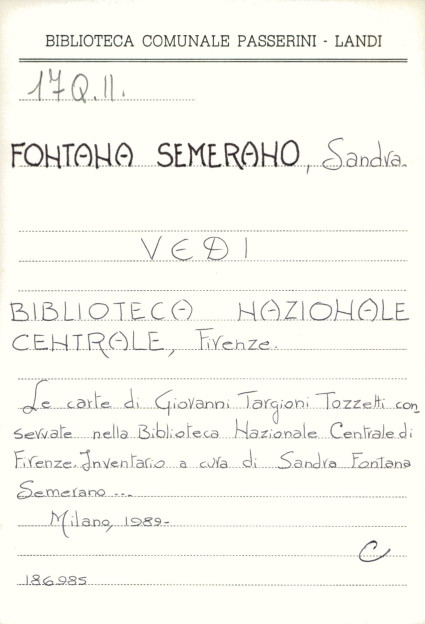 BIBLIOTECA COMUNALE PASSERINI - LANDI
17Q.II.
FONTANA SEMERANO, Sandra.
VEDI
BIBLIOTECA NAZIONALE
CENTRALE, Firenze.
Le carte di Giovanni Targioni Tozzetti con_
servate nella Biblioteca Nazionale Centrale di
Firenze. Inventario a cura di Sandra Fontana
Semerano ...
Milano, 1989-
C
186985